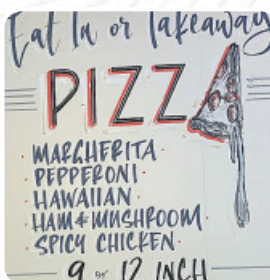 Eat In or Takeaway
PIZZA
· MARGHERITA ·
· PEPPERONI ·
· HAWAIIAN ·
· HAM + MUSHROOM ·
· SPICY CHICKEN ·
9 or 12 INCH